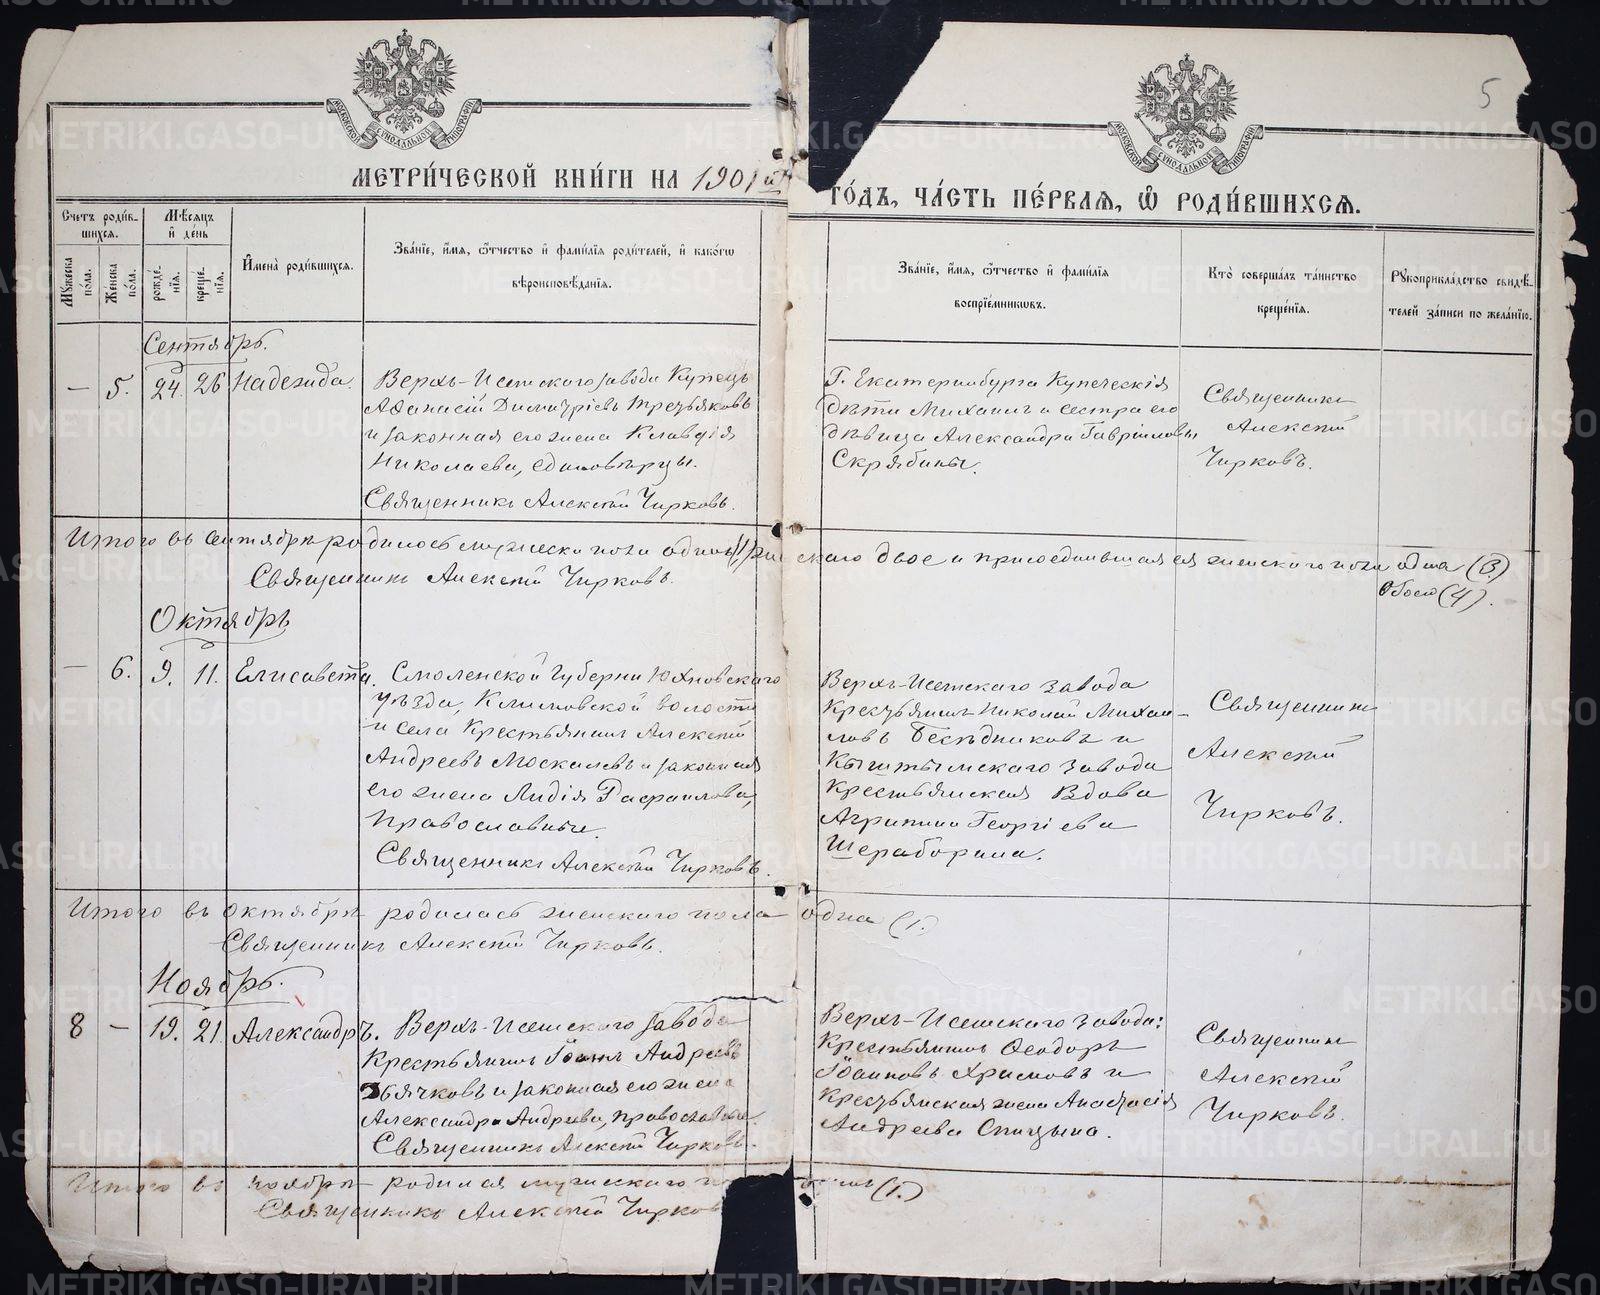 5
МОСКОВСКОЙ СѴНОДАЛЬНОЙ ТИПОГРАФІИ
МОСКОВСКОЙ СѴНОДАЛЬНОЙ ТИПОГРАФІИ
МЕТРИ́ЧЕСКОЙ КНИ́ГИ НА 1901й
ГО́ДЪ, ЧА́СТЬ ПЕ́РВАЯ, Ѡ РОДИ́ВШИХСЯ.
Счетъ роди́вшихся.
Мꙋжеска по́ла.
Женска по́ла.
Мѣ́сяцъ и де́нь
рожде́нїя.
креще́нїя.
И҆мена̀ роди́вшихся.
Зва́нїе, и҆́мя, ѻ҆́тчество и҆ фами́лїя роди́телей, и҆ како́гѡ
вѣроисповѣ́данїя.
Зва́нїе, и҆́мя, ѻ҆́тчество и҆ фами́лїя
воспрїе́мниковъ.
Кто̀ соверша́лъ та́инство
креще́нїя.
Рꙋкоприкла́дство свидѣ́-
телей за́писи по жела́нїю.
Сентябрь.
— 5. 24. 26 Надежда.
Верхъ-Исетскаго завода Купецъ
Аѳанасій Димитріевъ Третьяковъ
и законная его жена Клавдія
Николаева, единовѣрцы.
Священникъ Алексѣй Чирковъ.
Г. Екатеринбурга Купеческія
дѣти Михаилъ и сестра его
дѣвица Александра Гавріиловы
Скрябины.
Священникъ
Алексѣй
Чирковъ.
Итого въ сентябрѣ родилось мужеска пола одинъ (1) женскаго двое и присоединившаяся женскаго пола одна (3.)
Обоего (4).
Священникъ Алексѣй Чирковъ.
Октябрь
— 6. 9. 11. Елисавета.
Смоленской Губерни Юхновскаго
уѣзда, Климовской волости
и села Крестьянинъ Алексѣй
Андреевъ Москалевъ и законная
его жена Лидія Рафаилова,
Православные.
Священникъ Алексѣй Чирковъ.
Верхъ-Исетскаго завода
Крестьянинъ Николай Михаи-
ловъ Бесѣдниковъ и
Кыштымскаго завода
Крестьянская Вдова
Агрипина Георгіева
Шераборина.
Священникъ
Алексѣй
Чирковъ.
Итого въ Октябрѣ родилась женскаго пола одна (1.)
Священникъ Алексѣй Чирковъ.
Ноябрь.
8 — 19. 21. Александръ.
Верхъ-Исетскаго завода
Крестьянинъ Іоаннъ Андреевъ
Дьячковъ и законная его жена
Александра Андреева, православные.
Священникъ Алексѣй Чирковъ.
Верхъ-Исетскаго завода:
Крестьянинъ Ѳеодоръ
Іоанновъ Хримовъ и
Крестьянская жена Анастасія
Андреева Спицына.
Священникъ
Алексѣй
Чирковъ.
Итого въ ноябрѣ родился мужескаго (1.)
Священникъ Алексѣй Чирков
METRIKI.GASO-URAL.RU